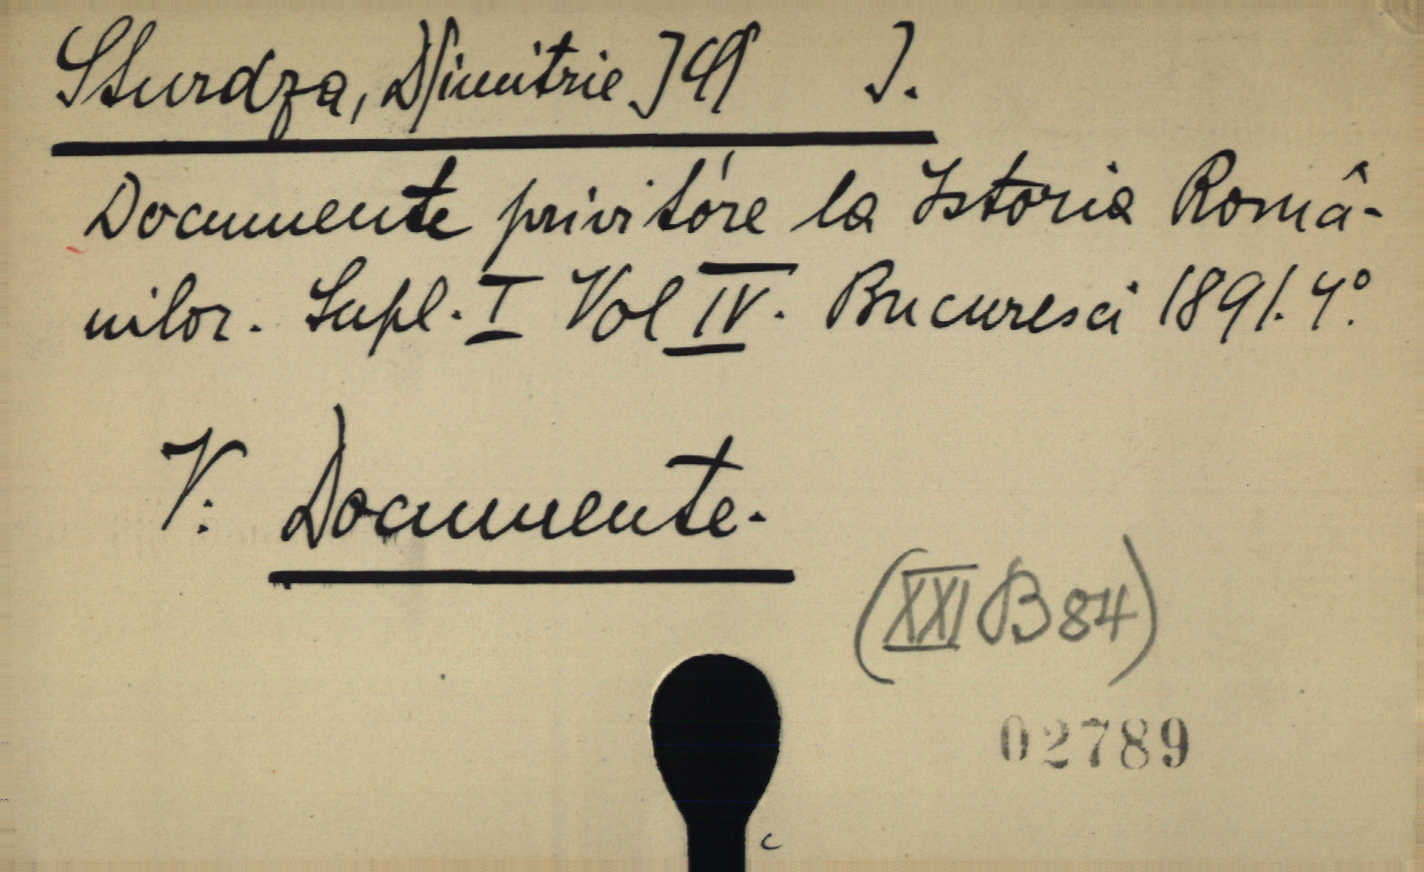 Sturdza, D[imitrie] A[.] J.
Documente privitóre la Istoria Româ-
nilor. Supl. I Vol IV. Bucuresci 1891. 4º.
V: Documente.
(XXI B 84)
02789
c